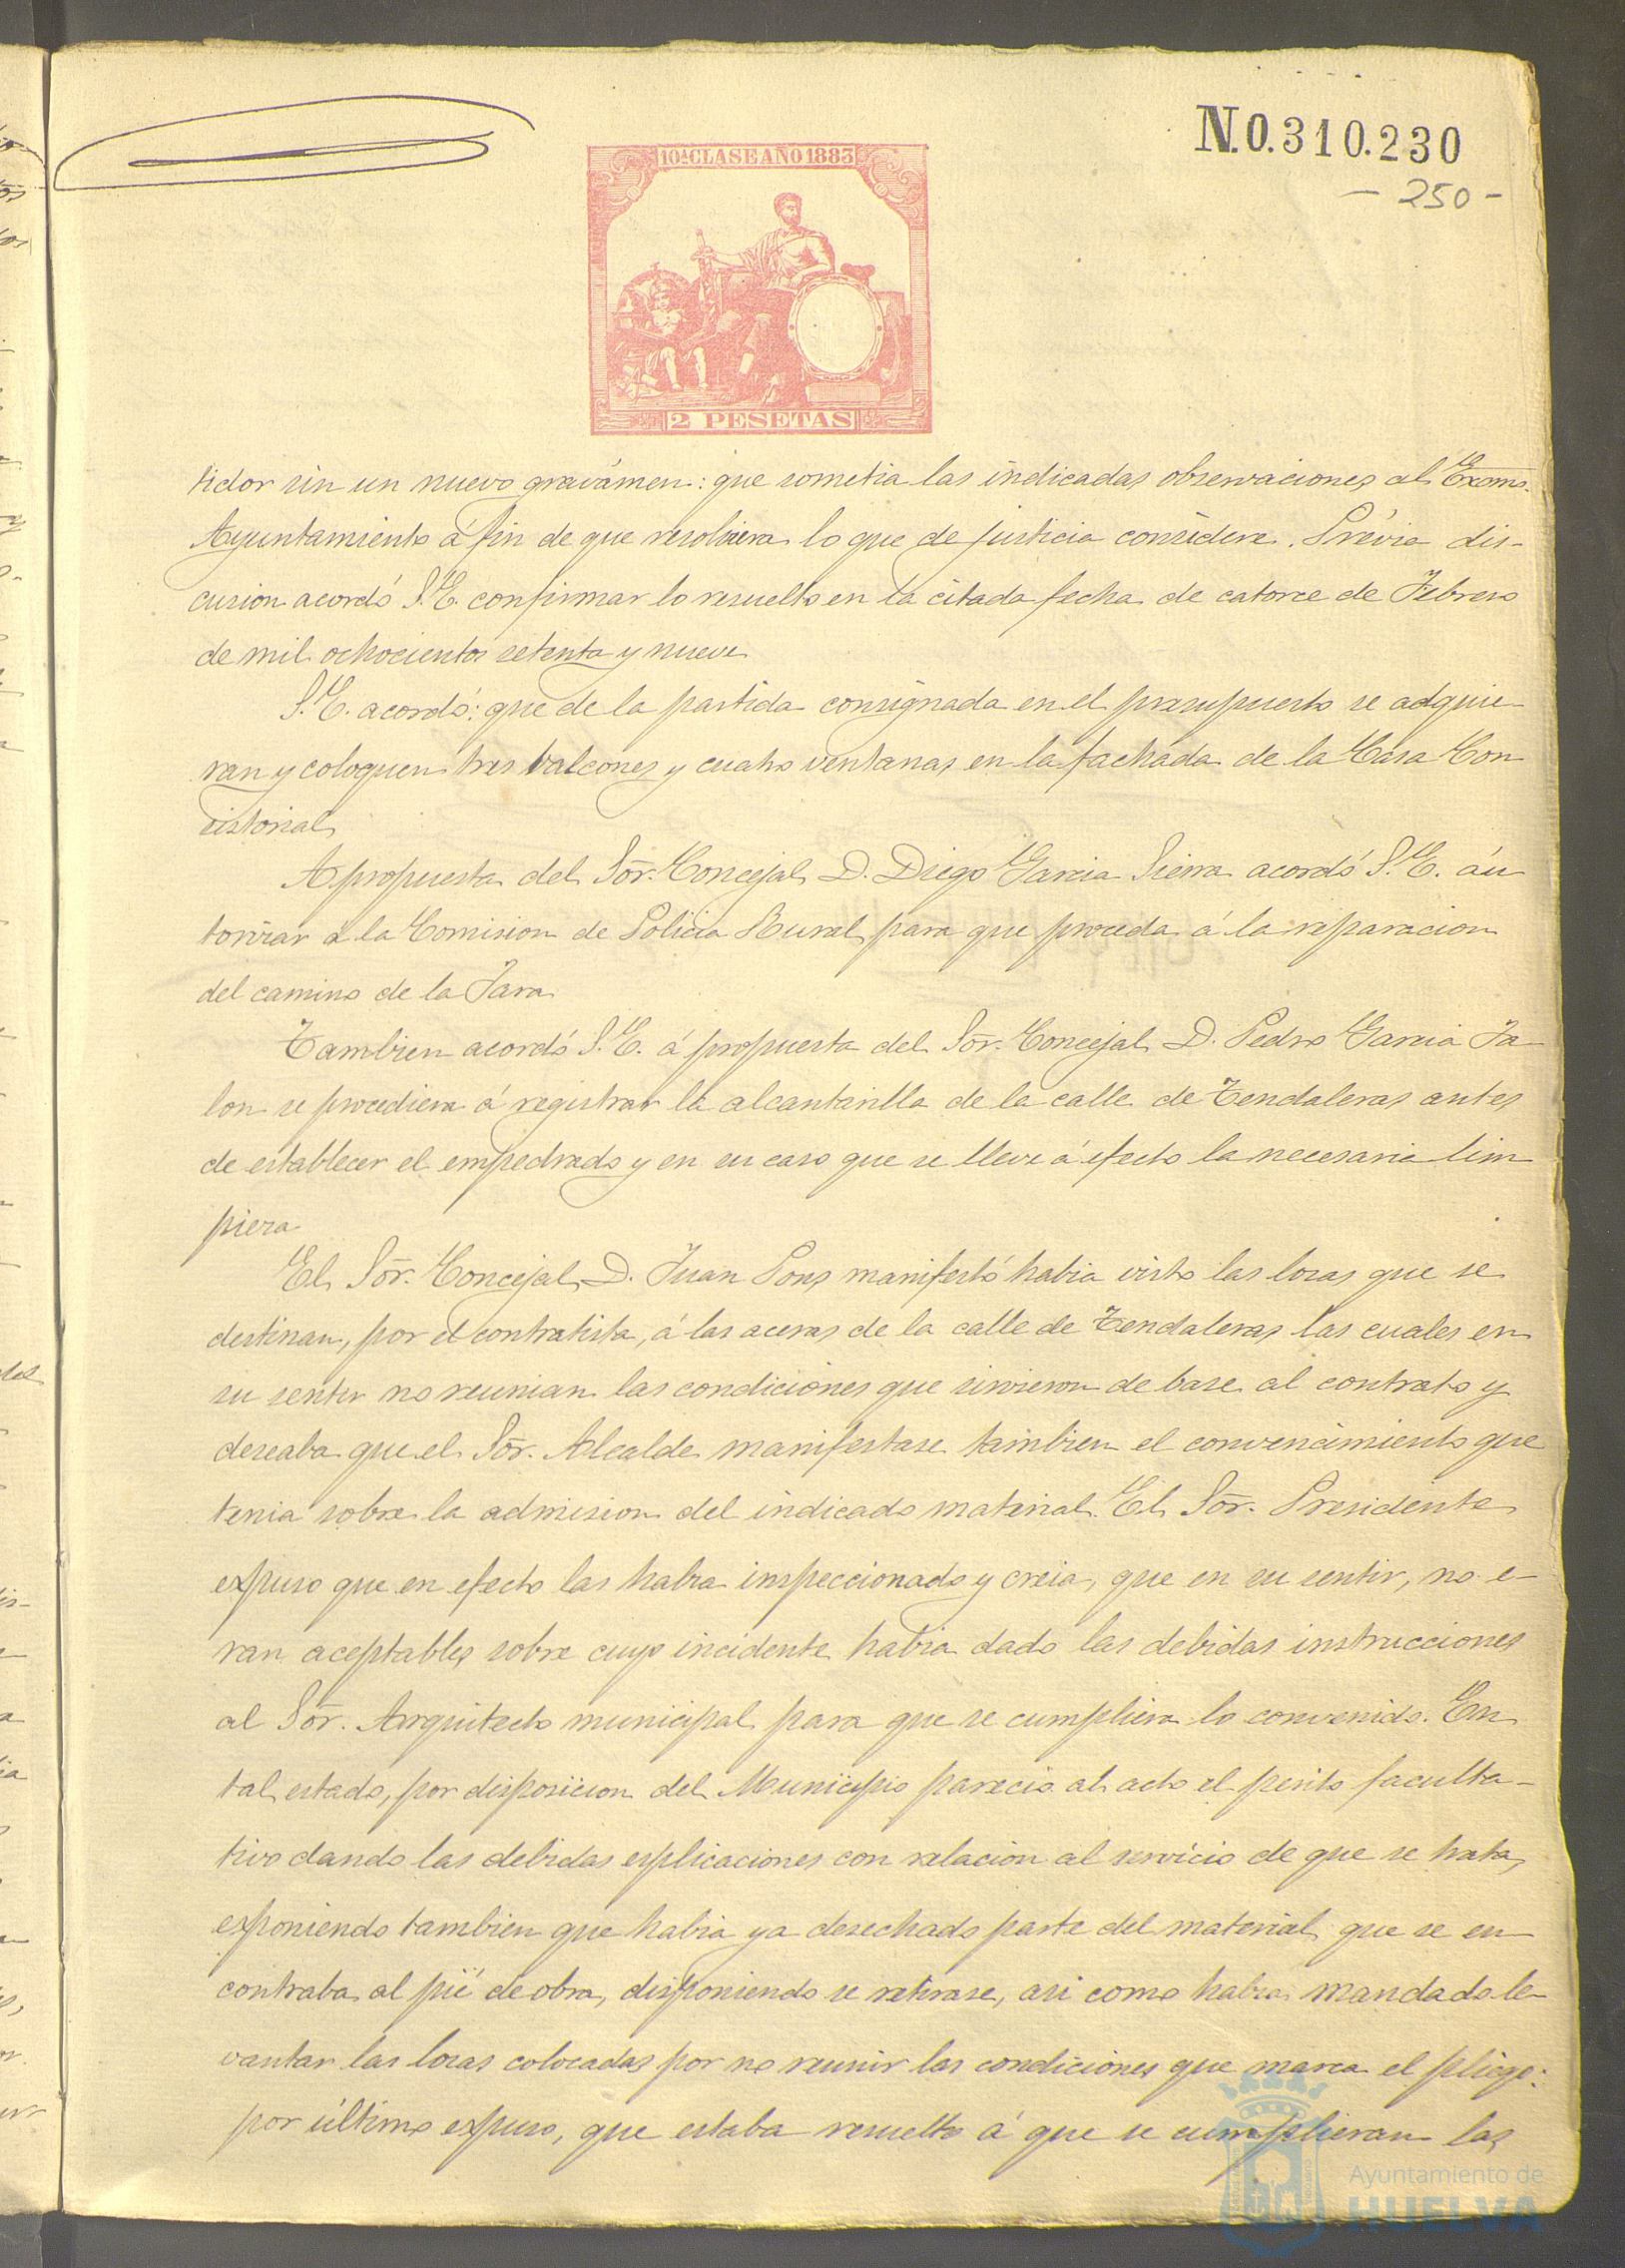 N.0.310.230
- 250 -
10ª CLASE AÑO 1883
2 PESETAS
tidor sin un nuevo gravámen: que sometia las indicadas observaciones al Excmo.
Ayuntamiento á fin de que resolviera lo que de justicia considere. Prévia dis-
cusion acordó S.E. confirmar lo resuelto en la citada fecha de catorce de Febrero
de mil ochocientos setenta y nueve
S.E. acordó: que de la partida consignada en el presupuesto se adquie-
ran y coloquen tres balcones y cuatro ventanas en la fachada de la Casa Con
sistorial
A propuesta del Sor. Concejal D. Diego Garcia Sierra acordó S.E. áu
torizar á la Comision de Policia Rural para que proceda á la reparacion
del camino de la Jara
Tambien acordó S.E. á propuesta del Sor. Concejal D. Pedro Garcia Ja-
lon se procediera á registrar la alcantarilla de la calle de Tendaleras antes
de establecer el empedrado y en su caso que se lleve á efecto la necesaria lim
pieza
El Sor. Concejal D. Juan Pons manifestó habia visto las losas que se
destinan, por el contratista, á las aceras de la calle de Tendaleras las cuales en
su sentir no reunian las condiciones que sirvieron de base al contrato y
deseaba que el Sor. Alcalde manifestase tambien el convencimiento que
tenia sobre la admision del indicado material. El Sor. Presidente
expuso que en efecto las habia inspeccionado y creia, que en su sentir, no e-
ran aceptables sobre cuyo incidente habia dado las debidas instrucciones
al Sor. Arquitecto municipal para que se cumpliera lo convenido. En
tal estado, por disposicion del Municipio parecio al acto el perito faculta-
tivo dando las debidas esplicaciones con relacion al servicio de que se trata,
esponiendo tambien que habia ya desechado parte del material que se en
contraba al pié de obra, disponiendo se retirase, asi como habia mandado le-
vantar las losas colocadas por no reunir las condiciones que marca el pliego:
por último expuso, que estaba resuelto á que se cumplieran las
Ayuntamiento de
HUELVA